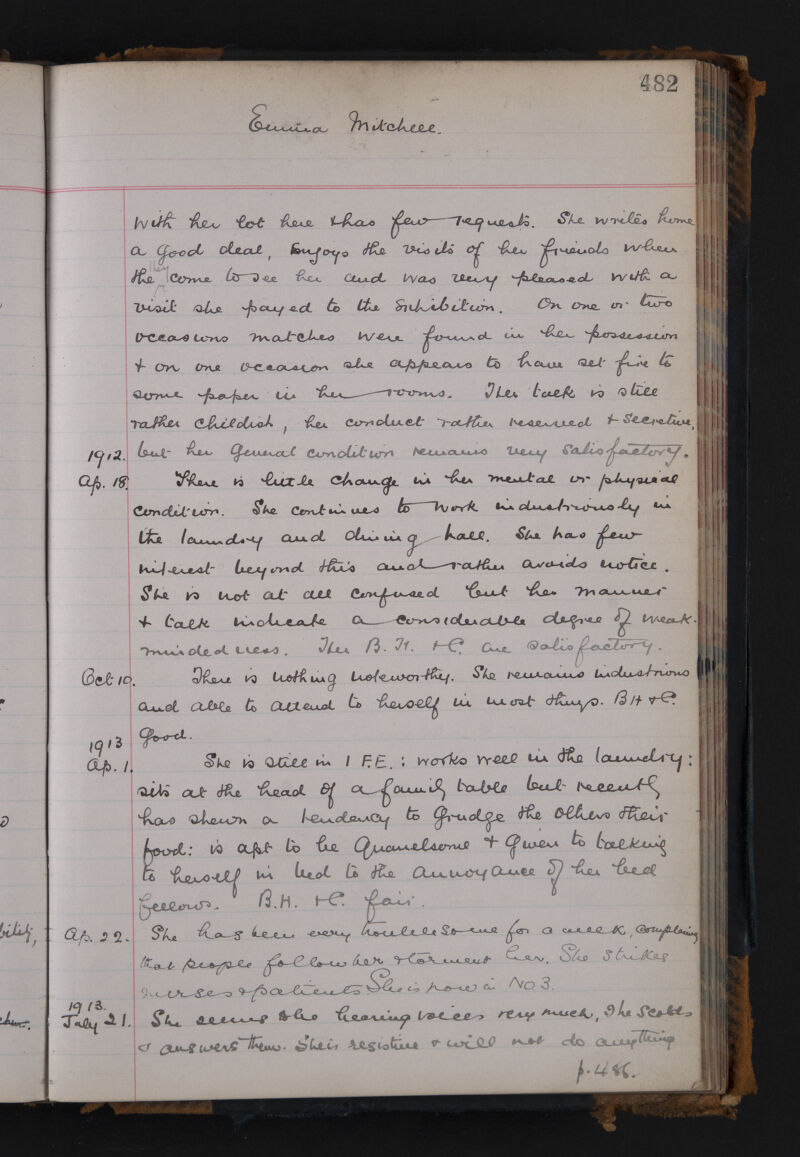 482
Emma Mitchell.
with her lot here & has few requests. She writes home
a good deal, Enjoys the visits of her friends when
the they come to see her and was very pleased with a
visit she payed to the Exhibition. On one or two
occasions matches were found in her possession
& on one occasion she appears to have set fire to
some paper in her rooms. Her talk is still
rather childish, her conduct rather reserved & secretive,
1912. but her general condition remains very satisfactory.
Ap. 18. There is little change in her mental or physical
condition. She continues to work industriously in
the laundry and dining hall. She has few
interest beyond this and rather avoids notice.
She is not at all confused but her manner
& talk indicate a considerable degree of weak-
mindedness. Her B. H. & C. are satisfactory.
Oct 10. There is nothing noteworthy. She remains industrious
and able to attend to herself in most things. B H & C.
1913 Good.
Ap. 1. She is still in 1 F.E. : works well in the laundry:
sits at the head of a family table but recently
has shewn a tendency to grudge the others their
food: is apt to be quarrelsome & given to talking
to herself in bed to the annoyance of her bed
fellows. B.H. & C. fair.
Ap. 22. She has been very troublesome for a week, complaining
that people follow her & torment her. She strikes
nurses & patients She is now in No 3.
1913.
July 21. She seems to be hearing voices very much, She scolds
& answers them. She is resistive & will not do anything
p. 486.